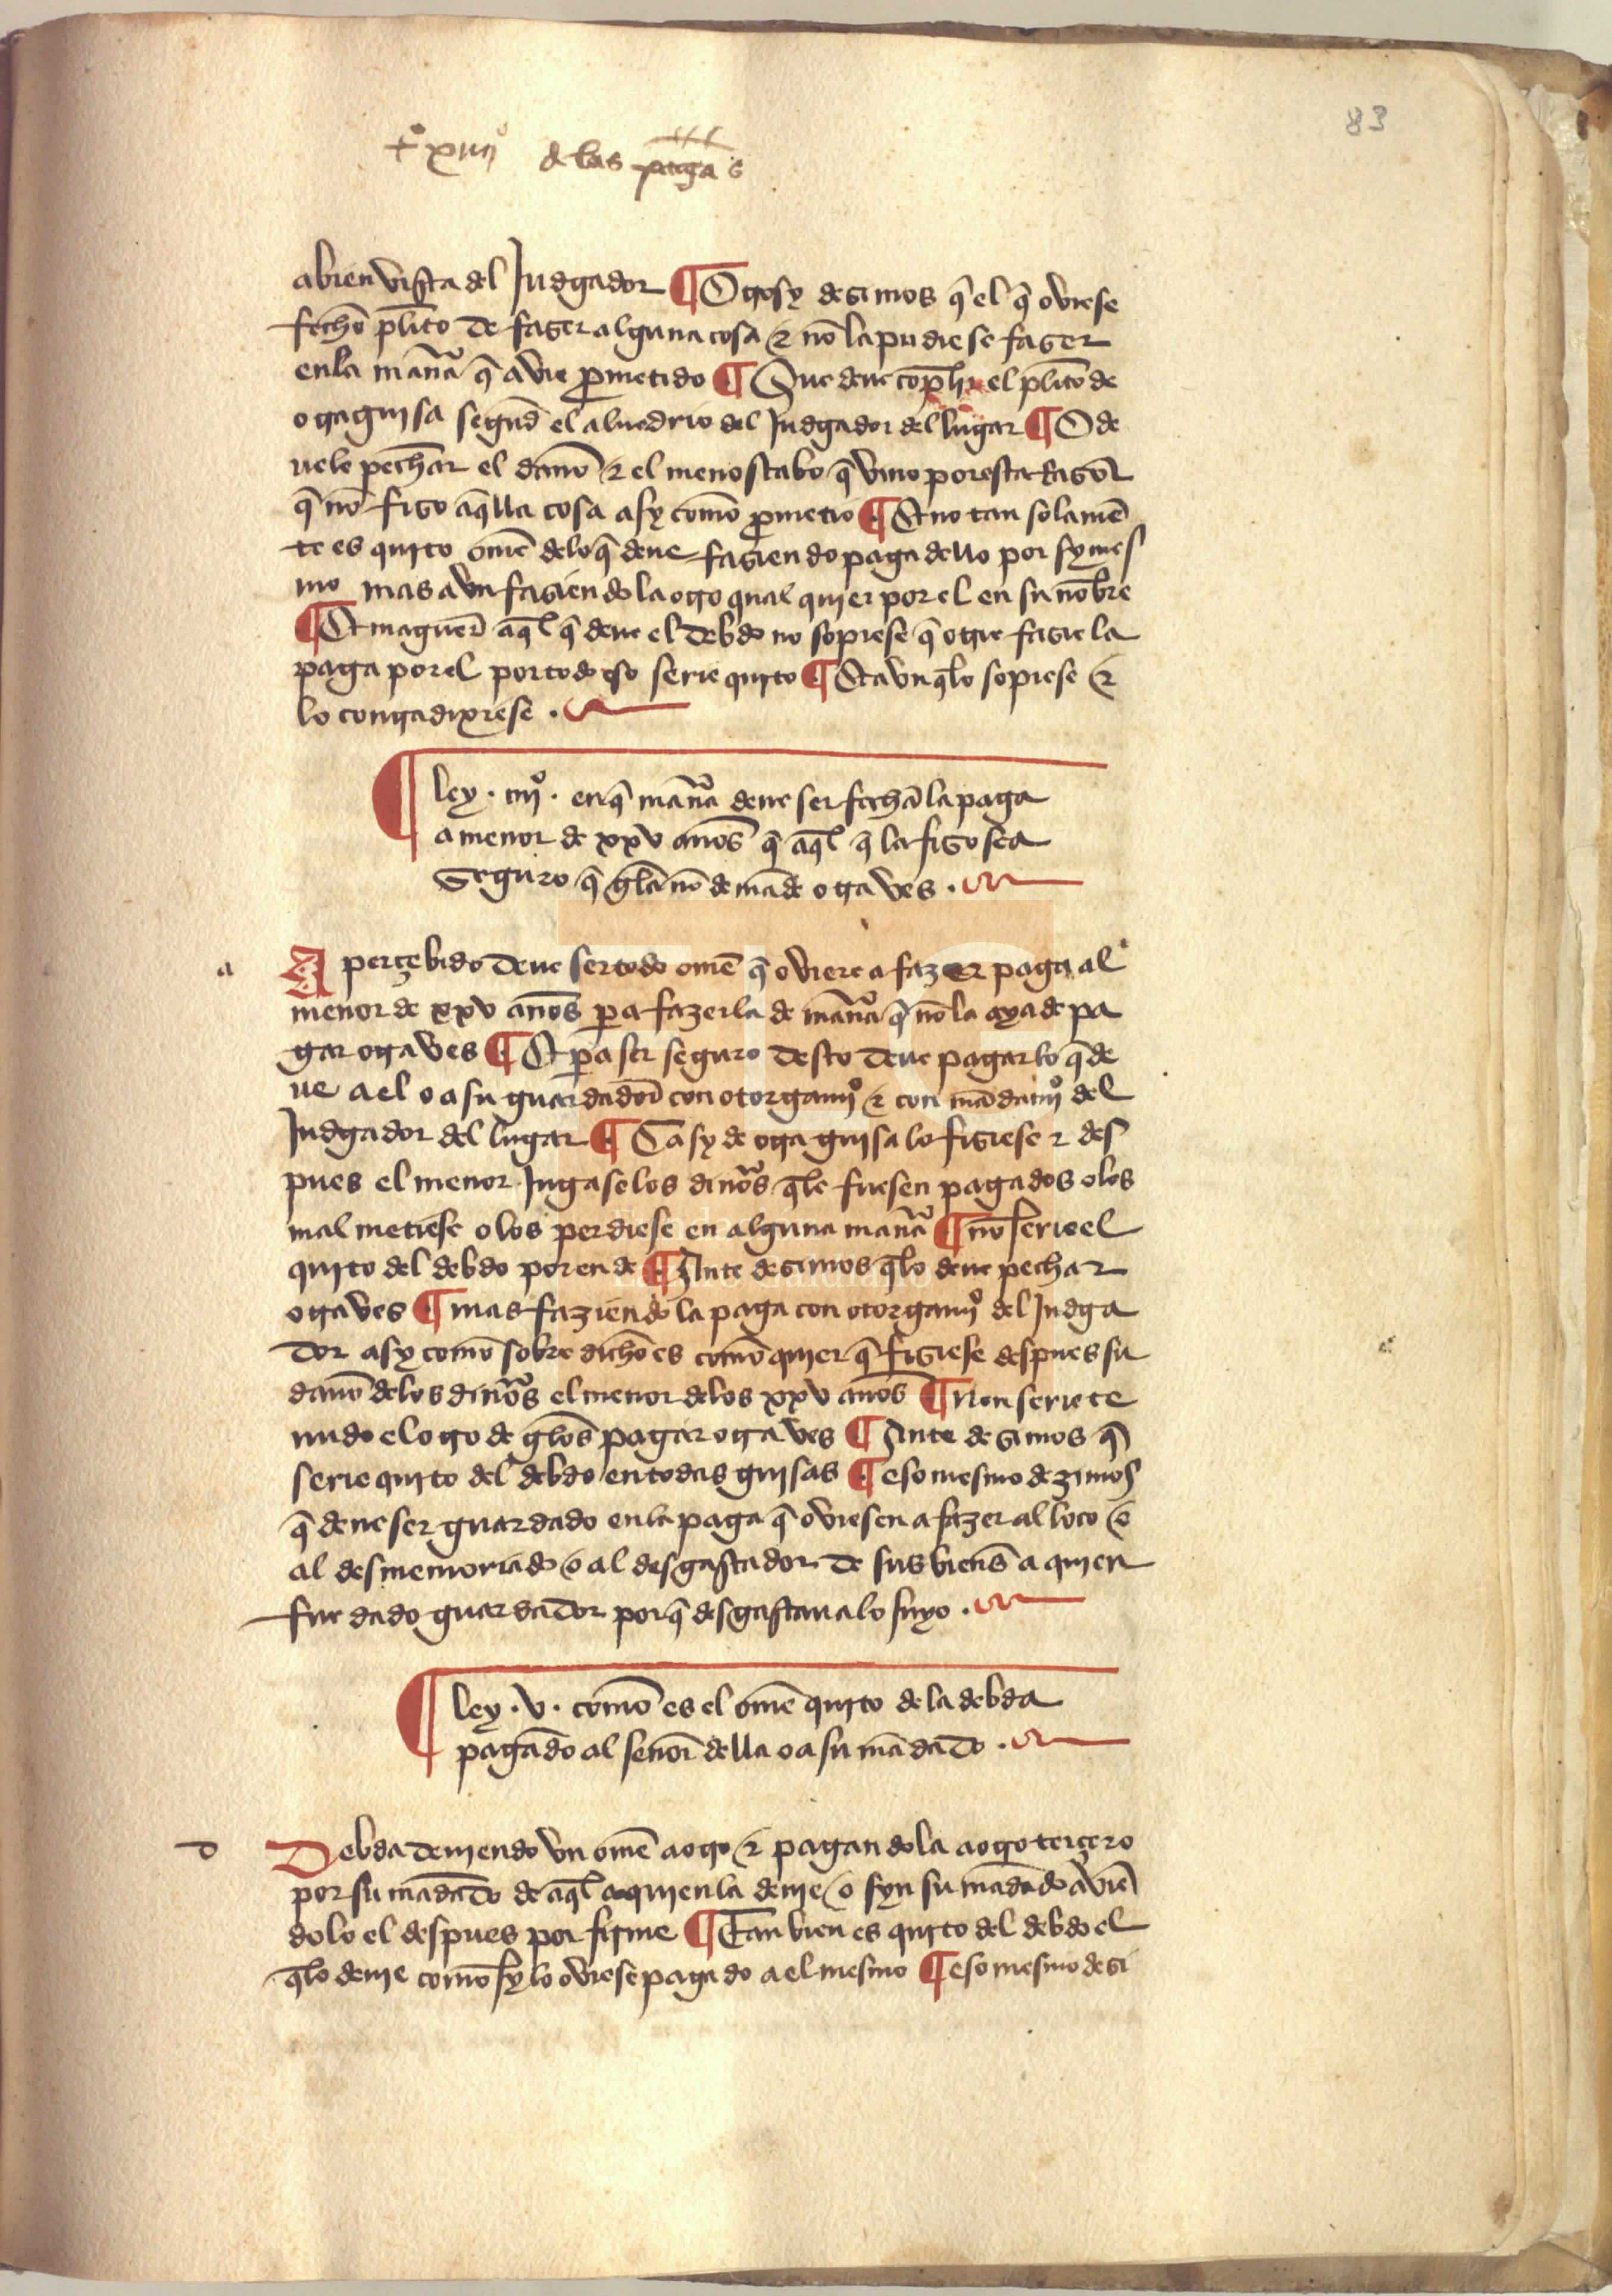 83
tº xiiijº de las pagas
a bien vista del Judgador ¶ Otrosy desimos q̃ el q̃ oviese
fecho pl̃ito de faser alguna cosa & nõ la pudiese faser
en la manã q̃ avie ꝓmetido ¶ Que deue cõplir el pl̃ito de
otra guisa segũd el aluedrio del Judgador del lugar ¶ O de
uele pechar el dano & el menoscabo q̃ vino por esta rasõ
q̃ nõ fiso aq̃lla cosa asy como ꝓmetio ¶ Et no tan solamẽ
te es quito ome de lo q̃ deue fasiendo paga dello por sy mes
mo mas avn fasiendo la otro qual quier por el en su nõbre
¶ Et maguer aq̃l q̃ deue el debdo no sopiese q̃ otrie fasie la
paga por el por todo eso serie quito ¶ Et avn q̃lo sopiese &
lo contradixiese .
¶ ley . iiijº . en q̃ manã deue ser fecha la paga
a menor de xxv anos q̃ aq̃l q̃ la fiso sea
seguro q̃ gela nõ demãde otra ves .
a
Aperçebido deue ser todo ome q̃ oviere a fazer paga al
menor de xxv anos pa fazerla de manã q̃ nõ la aya de pa
gar otra ves ¶ Et pa ser seguro desto deue pagar lo q̃ de
ue a el o a su guardador con otorgamiº & con mãdamiº del
Judgador del lugar ¶ Ca sy de otra guisa lo fisiese & des
pues el menor Jugase los dinos q̃le fuesen pagados o los
mal metiese o los perdiese en alguna manã ¶ nõ serie el
quito del debdo por ende ¶ Ante desimos q̃lo deue pechar
otra ves ¶ mas faziendo la paga con otorgamiº del Judga
dor asy como sobre dicho es como quier q̃ fisiese despues su
dano de los dinos el menor de los xxv anos ¶ Non serie te
nudo el otro de gelos pagar otra ves ¶ Ante desimos q̃
serie quito del debdo en todas guisas ¶ eso mesmo dezimos
q̃ deue ser guardado en la paga q̃ oviesen a fazer al loco o
al desmemoriado o al desgastador de sus bienes a quien
fue dado guardador por q̃ desgastaua lo suyo .
¶ ley . v . como es el ome quito de la debda
pagãdo al senor della o a su mãdado .
d
Debda deuiendo vn ome a otro & pagandola a otro terçero
por su mãdado de aq̃l a quien la deuie o syn su mãdado aviẽ
dolo el despues por firme ¶ Tan bien es quito del debdo el
q̃lo deuie como sy lo oviese pagado a el mesmo ¶ eso mesmo desi